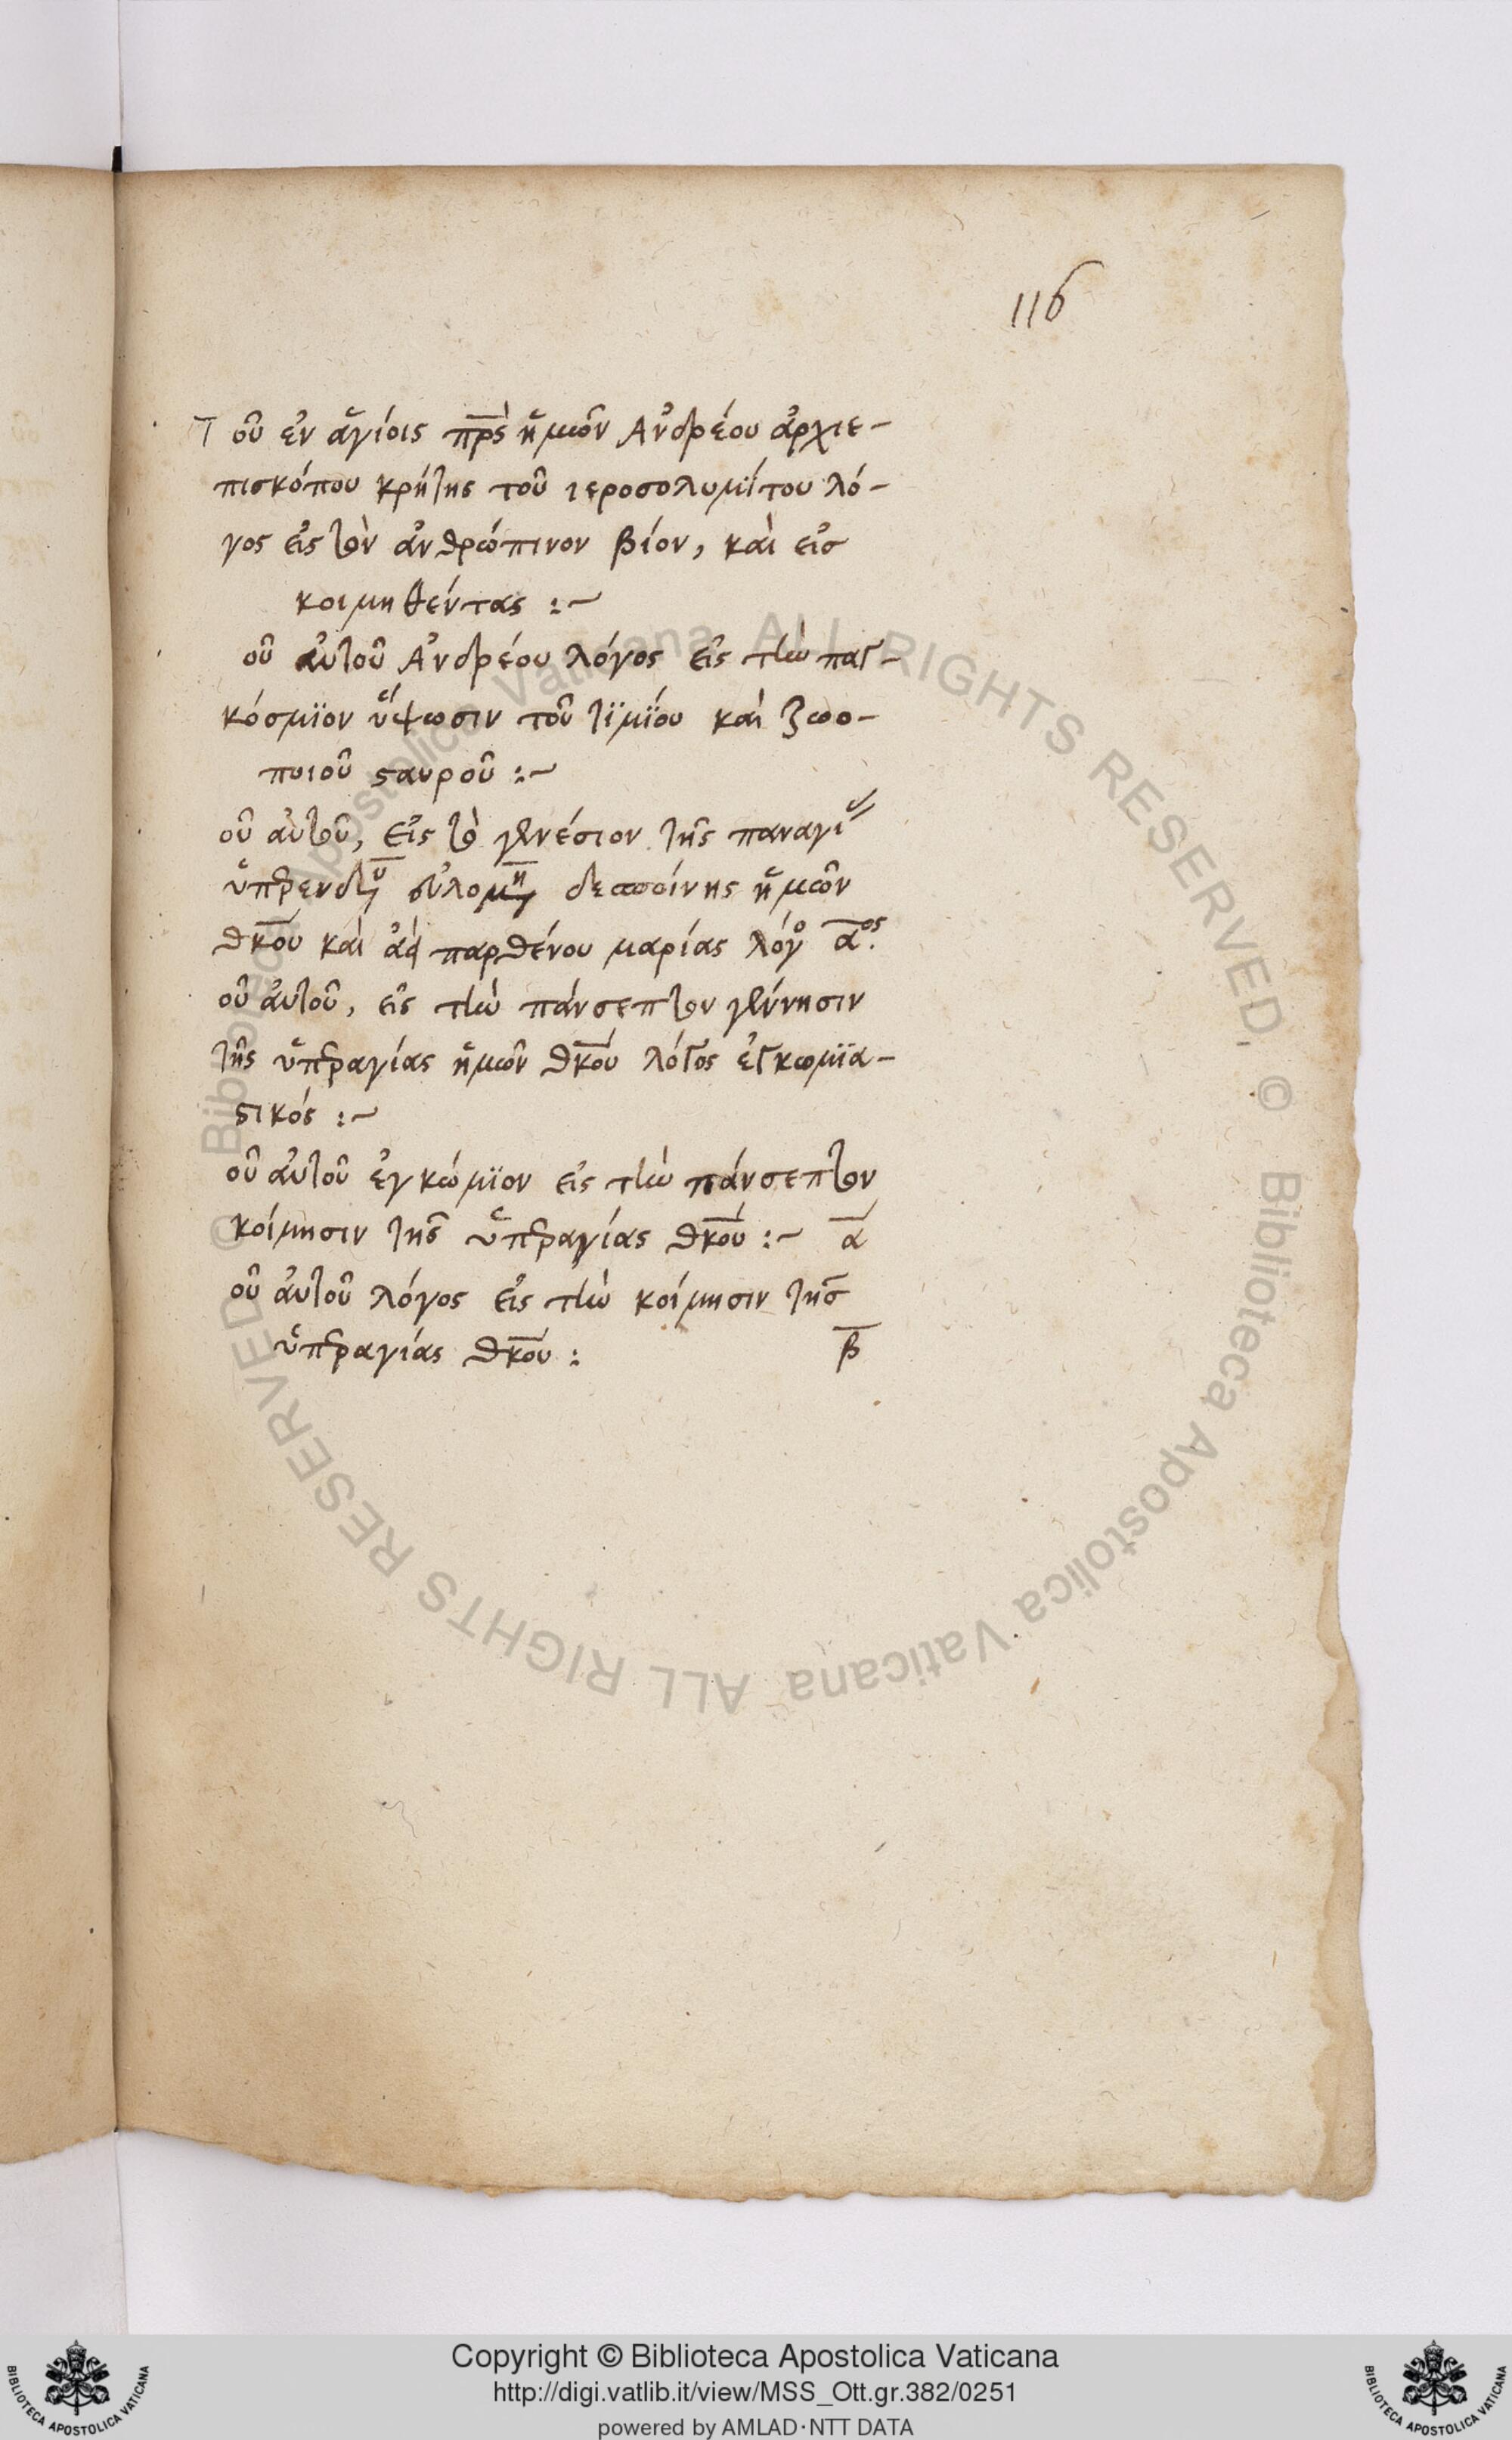 116
Τοῦ ἐν ἁγίοις πρς ἡμῶν Ἀνδρέου ἀρχιε-
πισκόπου κρήτης τοῦ ιεροσολυμίτου λό-
γος εἰς τὸν ἀνθρώπινον βίον, καὶ εἰς
κοιμηθέντας :~
οῦ αὐτοῦ Ἀνδρέου λόγος εἰς τὴν παγ-
κόσμϊον ὕψωσιν τοῦ τϊμϊου καὶ ζωο-
ποιοῦ σταυροῦ :~
οῦ αὐτοῦ, εἰς τὸ γενέσιον τῆς παναγι
δεσποίνης ἡμῶν
θκου καὶ παρθένου μαρίας λόγο α ος.
οῦ αὐτοῦ, εἰς τὴν πάνσεπτον γέννησιν
τῆς ὑπεραγίας ἡμῶν θκου λόγος ἐγκωμϊα-
στικός :~
οῦ αὐτοῦ ἐγκώμϊον εἰς τὴν πάνσεπτον
κοίμησιν τῆς ὑπεραγίας θκου :~ α
οῦ αὐτοῦ λόγος εἰς τὴν κοίμησιν τῆς
ὑπεραγίας θκου : β
© Biblioteca Apostolica Vaticana ALL RIGHTS RESERVED. © Biblioteca Apostolica Vaticana ALL RIGHTS RESERVED
Copyright © Biblioteca Apostolica Vaticana
http://digi.vatlib.it/view/MSS_Ott.gr.382/0251
powered by AMLAD·NTT DATA
BIBLIOTECA APOSTOLICA VATICANA
BIBLIOTECA APOSTOLICA VATICANA